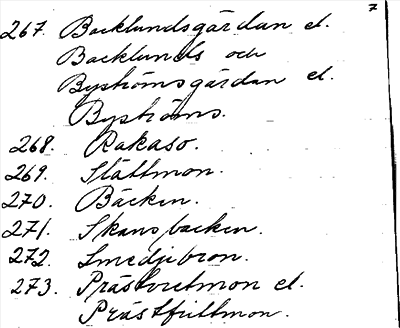 7
267. Backlundsgärdan el.
Backlunds och
Byströmsgärdan el.
Byströms.
268. Rakaso.
269. Slättmon.
270. Bäcken.
271. Skansbacken.
272. Smedjebron.
273. Prästvretmon el.
Prästfrittmon.